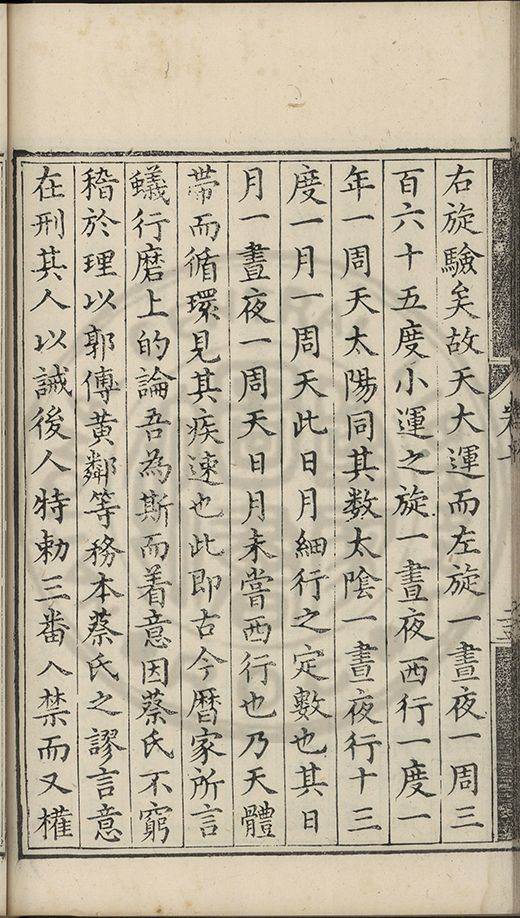 右旋驗矣故天大運而左旋一晝夜一周三
百六十五度小運之旋一晝夜西行一度一
年一周天太陽同其數太陰一晝夜行十三
度一月一周天此日月細行之定數也其日
月一晝夜一周天日月未嘗西行也乃天體
帶而循環見其疾速也此即古今曆家所言
蟻行磨上的論吾為斯而着意因蔡氏不窮
稽於理以郭傅黃鄰等務本蔡氏之謬言意
在刑其人以誡後人特勅三番入禁而又權